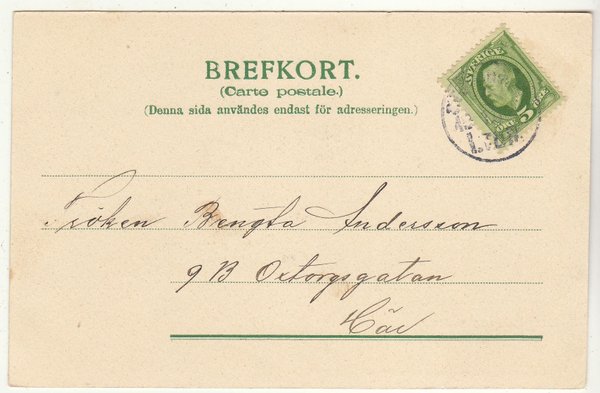 BREFKORT.
(Carte postale.)
(Denna sida användes endast för adresseringen.)
SVERIGE
5 ÖRE
Fröken Bengta Andersson
9 B Oxtorgsgatan
Här